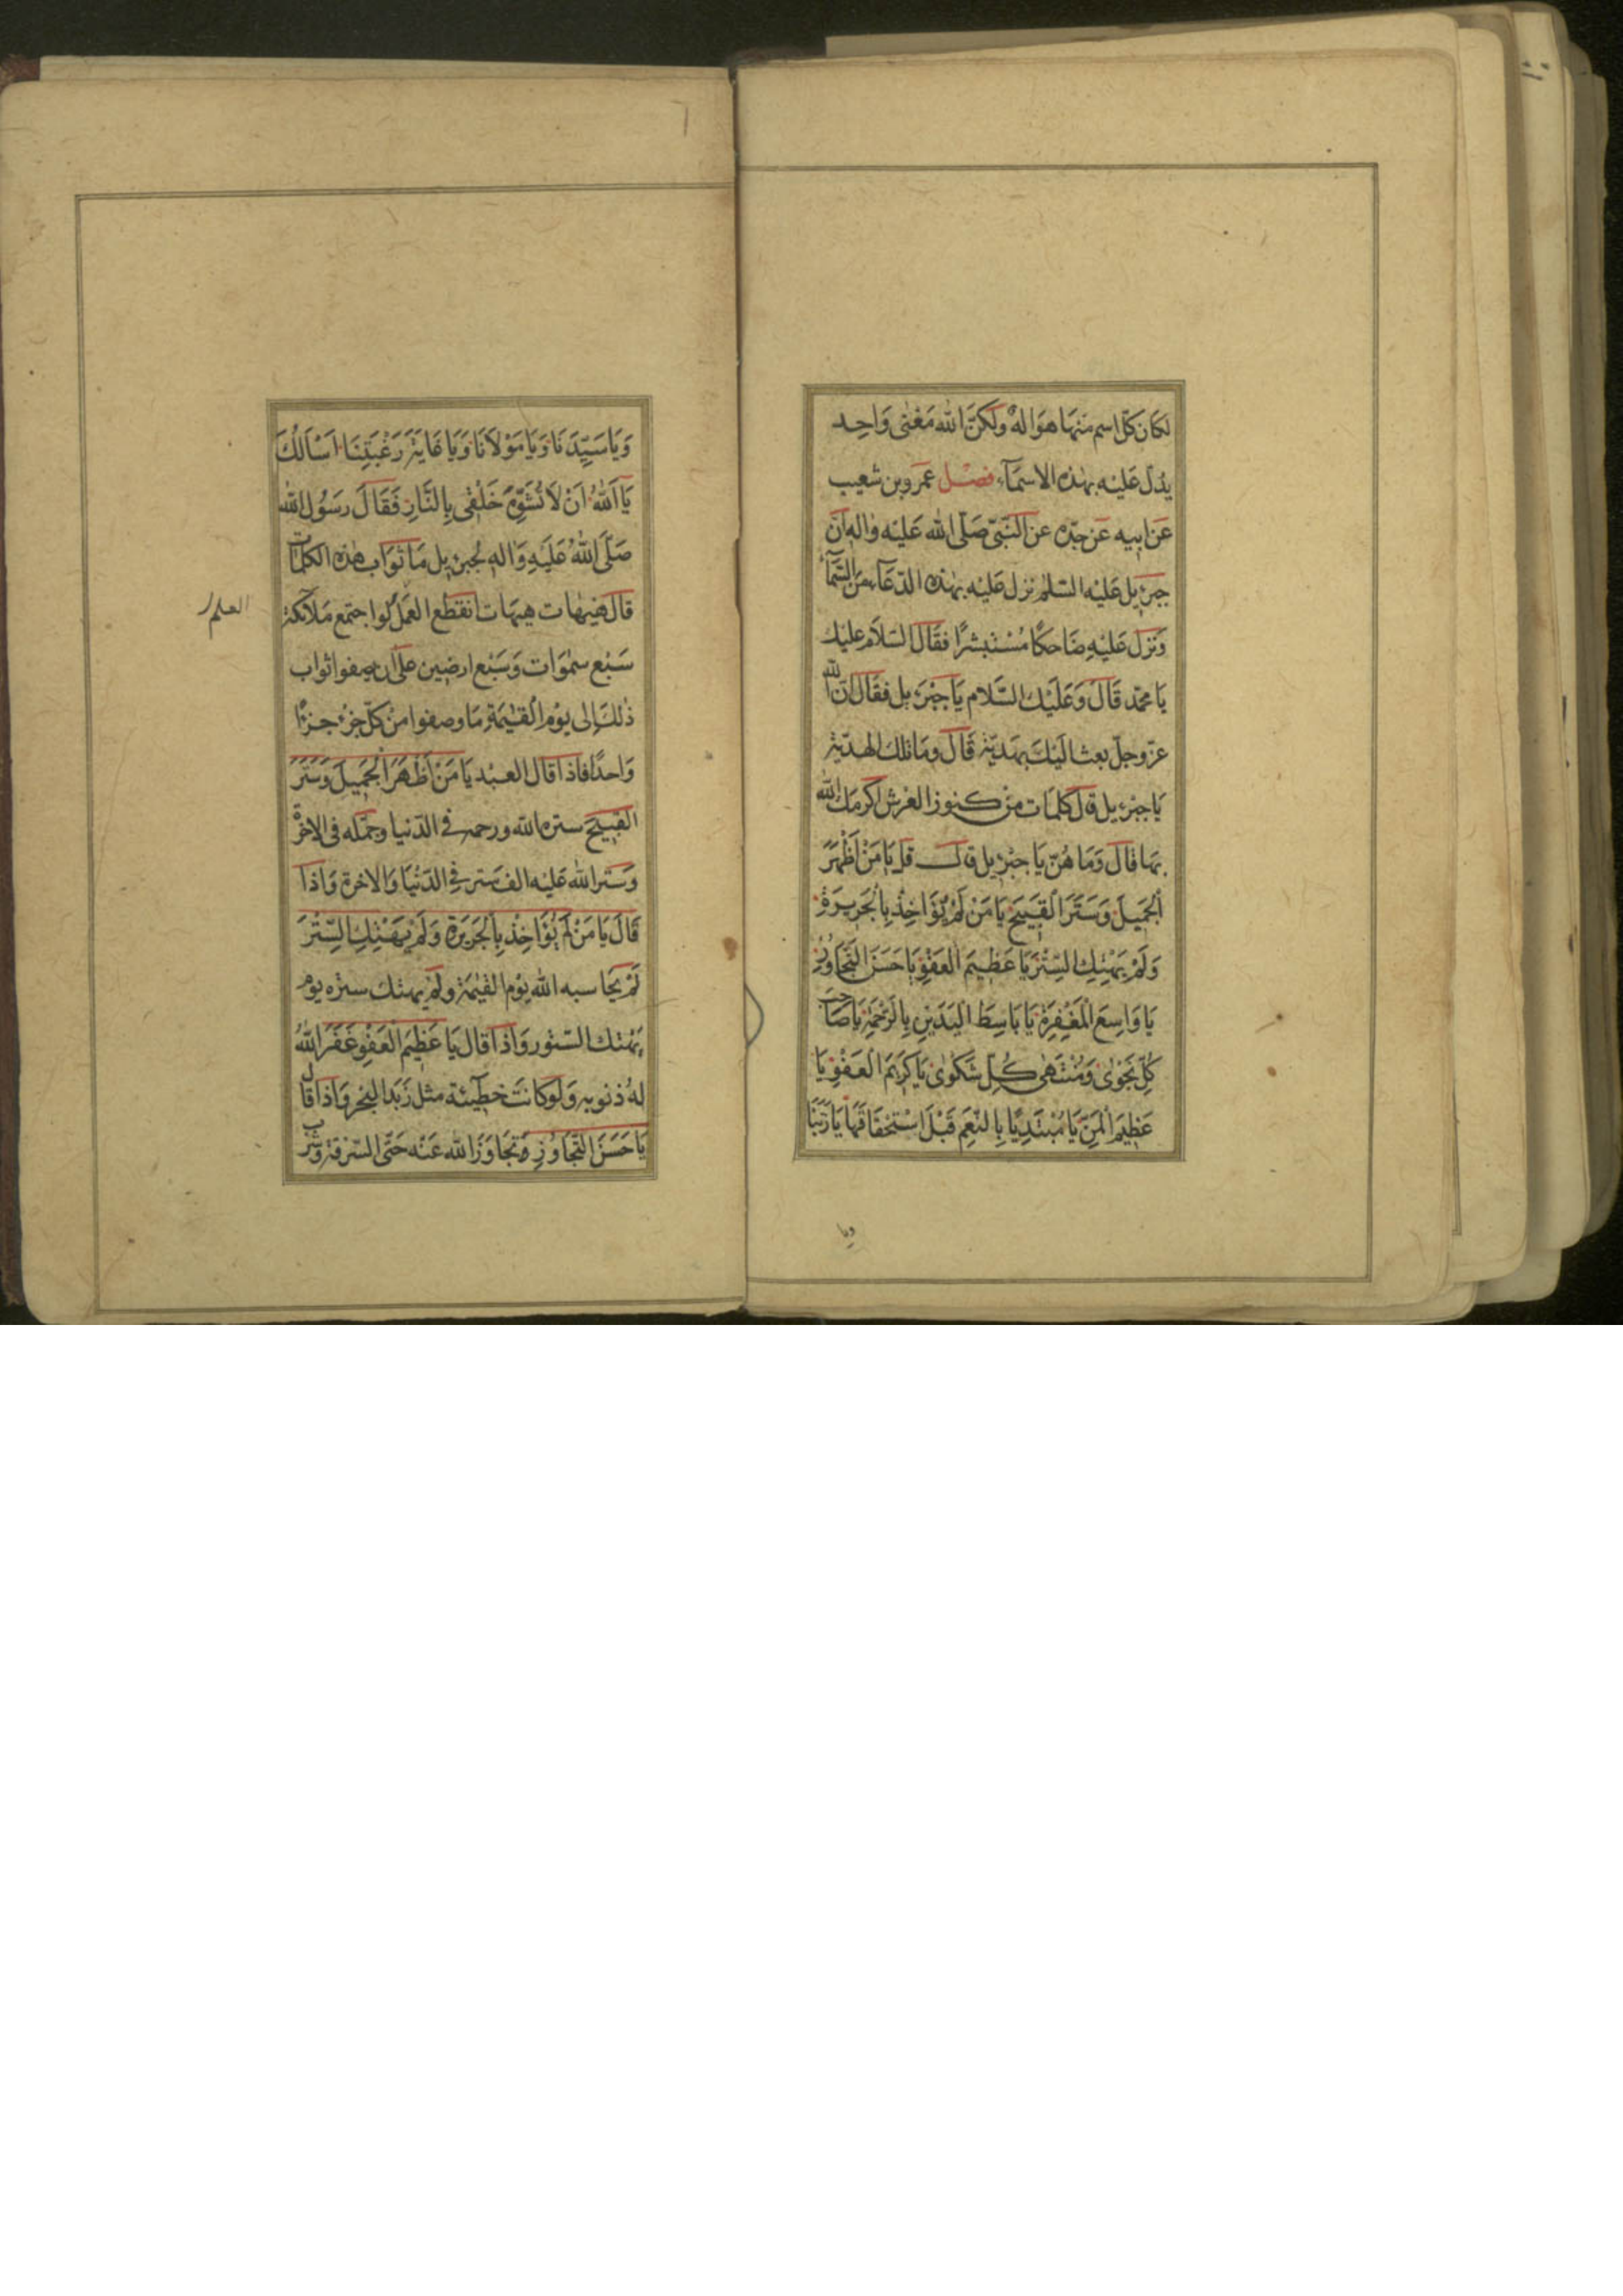 لكان كلّ اسم منها هوالهٌ ولكنّ الله مَعْنٰى وَاحِد
يدُلّ عَليْه بهٰذه الاسمَآء فصْل عمَروبن شعيب
عَن ابيه عَن جدّه عن النّبىّ صَلّى الله عَليْه واٰله انّ
جبرَئيل عَليْه السّلم نزل عَليْه بهٰذه الدّعَآء منَ السّمَآء
وَنزل عَليْهِ ضَاحكًا مُسْتبشرًا فقَال السّلَام عليك
يَا محمّد قَالَ وَعَليْك السّلام يَا جبْرَئيل فقَال انّ الله
عزّوجلّ بعث اليَك بهَديّة قَالَ ومَا تلك الهديّة
يَا جبرَئيل قال كلمَات منْ كنوز العَرش اكرمَك الله
بهَا قالَ وَمَا هُنّ يَا جبرَئيل قال قل يَا مَنْ اَظْهَرَ
الْجَميلَ وَسَتَرَ الْقَبيحَ يَا مَنْ لَمْ يُؤَاخِذْ بِالْجَرِيرَةِ
وَلَمْ يَهْتِكِ السِّتْرَ يَا عَظِيمَ الْعَفْوِ يَا حَسَنَ التَّجَاوُزِ
يَا وَاسِعَ الْمَغْفِرَةِ يَا بَاسِطَ الْيَدَيْنِ بِالرَّحْمَةِ يَا صَاحِبَ
كُلِّ نَجْوٰى وَمُنْتَهٰى كُلِّ شَكْوٰى يَا كَرِيمَ الْعَفْوِ يَا
عَظِيمَ الْمَنِّ يَا مُبْتَدِيًا بِالنِّعَمِ قَبْلَ اسْتِحْقَاقِهَا يَا رَبَّنَا
ويا
وَيَا سَيِّدَنَا وَيَا مَوْلَانَا وَيَا غَايَةَ رَغْبَتِنَا اَسْاَلُكَ
يَا اَللهُ اَنْ لَا تُشَوِّهَ خَلْقٖى بِالنَّارِ فَقَالَ رَسُول الله
صَلّى اللهُ عَلَيهِ وَاٰله لجبرَئيل مَا ثوَاب هٰذه الكلمات
قالَ هَيهَات هيهَات انقطع العمَل لو اجتمع مَلآئكة
العلم
سَبْع سمٰوَات وَسَبْع ارضين علىٰ ان يصفوا ثواب
ذٰلك الى يوْم القيٰمة مَا وصفوا منْ كلّ جزْء جزءًا
وَاحدًا فاذا قال العبْد يَا مَنْ اَظْهَرَ الْجَمِيلَ وَسَتَرَ
القبيحَ ستره الله ورحمه فى الدّنيا وجمّله فى الاخرة
وَستر الله عَليْه الف ستر فى الدّنْيَا وَالاخرة وَاذا
قَالَ يَا مَنْ لَمْ يُؤَاخِذْ بِالْجَرِيرَةِ وَلَمْ يَهْتِكِ السِّتْرَ
لَمْ يحَاسبه الله يَوْم القيٰمَة ولَمْ يهتك ستره يوْم
يهْتك السّتور وَاذا قال يَا عَظِيمَ الْعَفْوِ غَفَرَ اللهُ
لهُ ذنوبه وَلو كانتَ خطيئته مثل زَبَد البَحْر وَاذا قال
يَا حَسَنَ التَّجَاوُزِ تجَاوَز الله عَنْه حَتّى السّرقة وَشرب